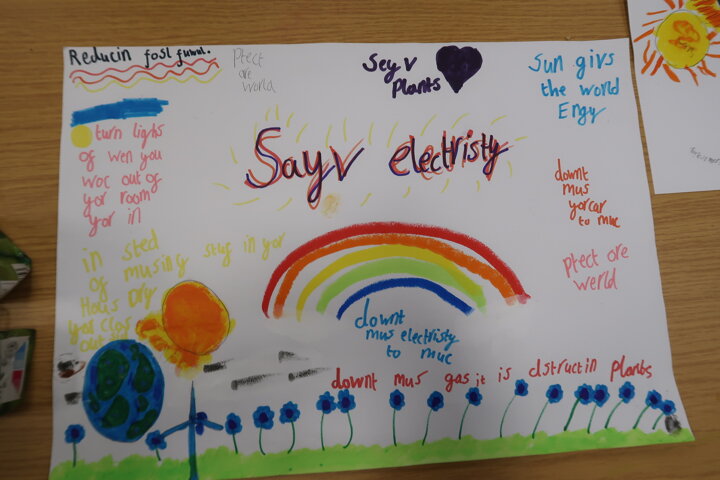 Reducin fosl fumnl.
Ptect
ore
world
Sey v
plants
Sun givs
the world
Engy
turn lighs
of wen you
woc out of
yor room
yor in
Sayv electristy
downt
mus
yorcar
to muc
ptect ore
werld
in sted
of musing stuf in yor
Hous Dry
yor clos
out
downt
mus electristy
to muc
downt mus gas it is dstructin plants